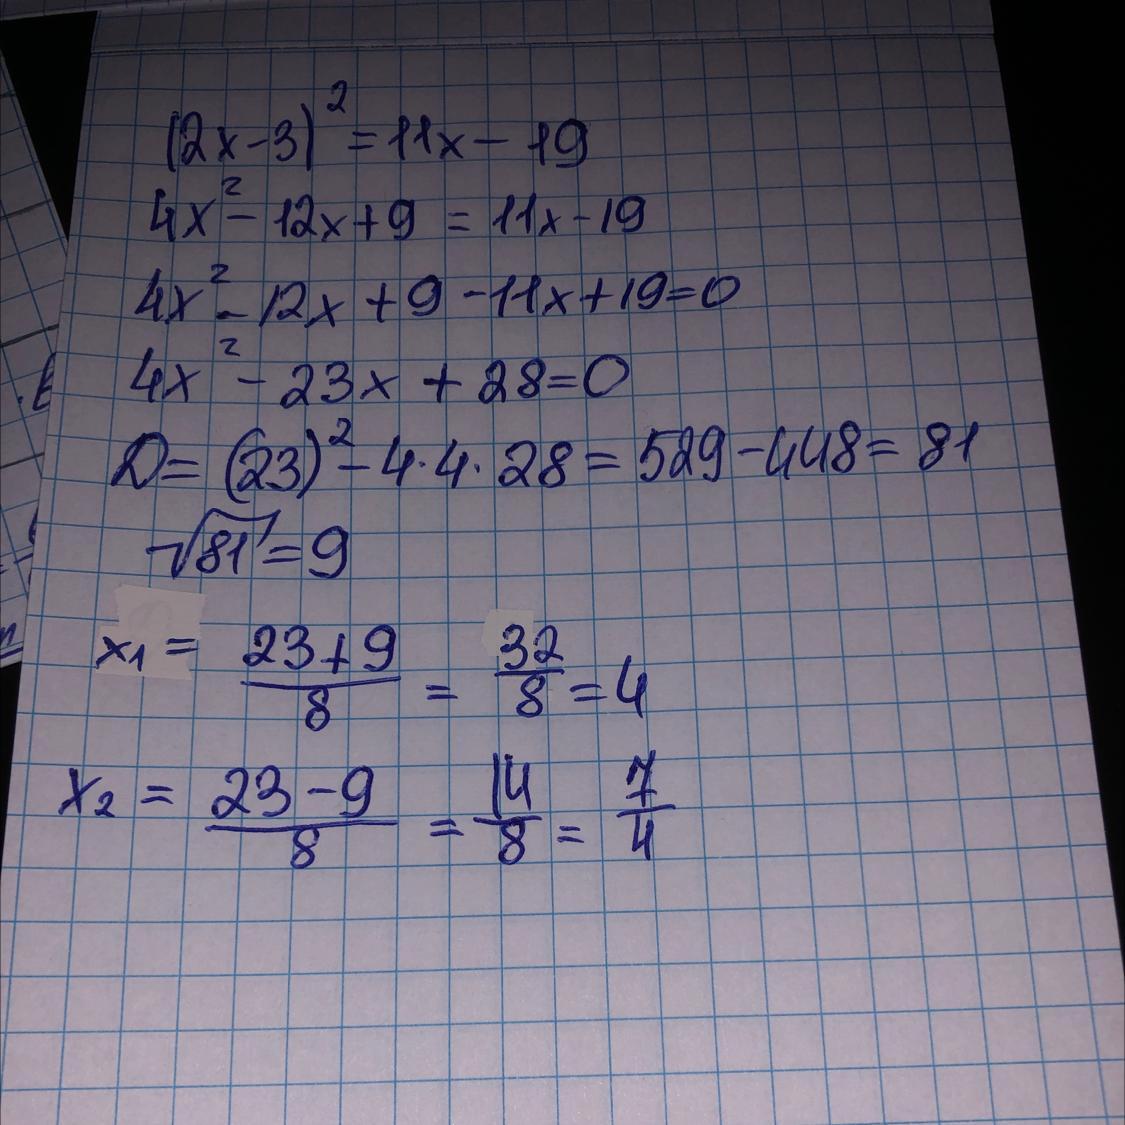 (2x-3)² = 11x - 19
4x² - 12x + 9 = 11x - 19
4x² - 12x + 9 - 11x + 19 = 0
4x² - 23x + 28 = 0
D = (23)² - 4·4·28 = 529 - 448 = 81
√81 = 9
x₁ = (23+9)/8 = 32/8 = 4
x₂ = (23-9)/8 = 14/8 = 7/4